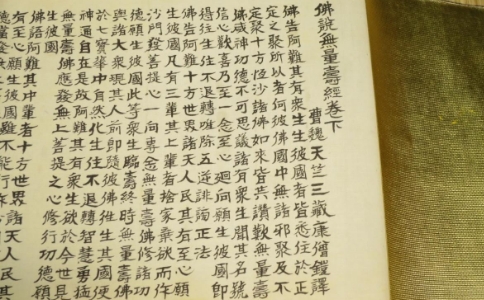 佛說無量壽經卷下
曹魏天竺三藏康僧鎧譯
佛告阿難其有衆生生彼國者皆悉住於正
定之聚所以者何彼佛國中無諸邪聚及不
定聚十方恆沙諸佛如來皆共讚歎無量壽
佛威神功德不可思議諸有衆生聞其名號
信心歡喜乃至一念至心迴向願生彼國即
得往生住不退轉唯除五逆誹謗正法
佛告阿難十方世界諸天人民其有至心願
生彼國凡有三輩其上輩者捨家棄欲而作
沙門發菩提心一向專念無量壽佛修諸功
德願生彼國此等衆生臨壽終時無量壽佛
與諸大衆現其人前即隨彼佛往生其國便
於七寶華中自然化生住不退轉智慧勇猛
神通自在是故阿難其有衆生欲於今世見
無量壽佛應發無上菩提之心修行功德願
生彼國
佛語阿難其中輩者十方世界諸天人民其
有至心願生彼國雖不能行作沙門
德當